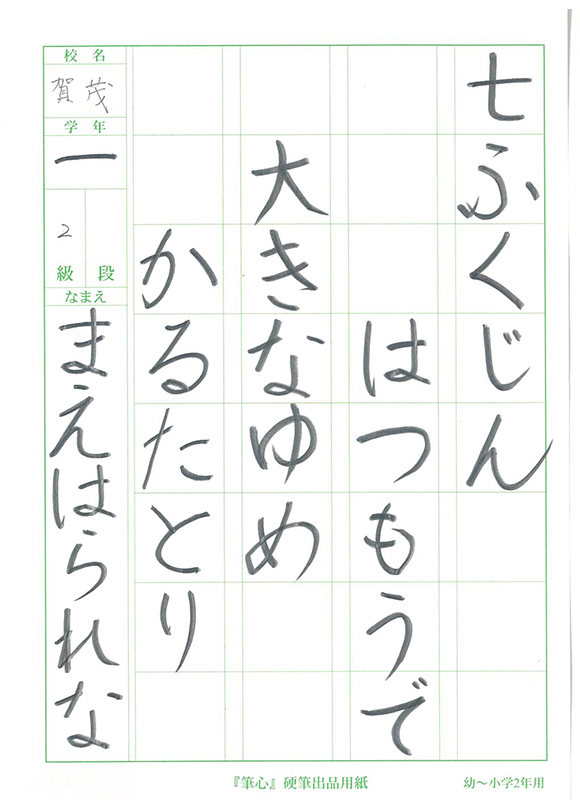 七ふくじん
はつもうで
大きなゆめ
かるたとり
校名
賀茂
学年
一
2
級段
なまえ
まえはられな
『筆心』硬筆出品用紙
幼〜小学2年用